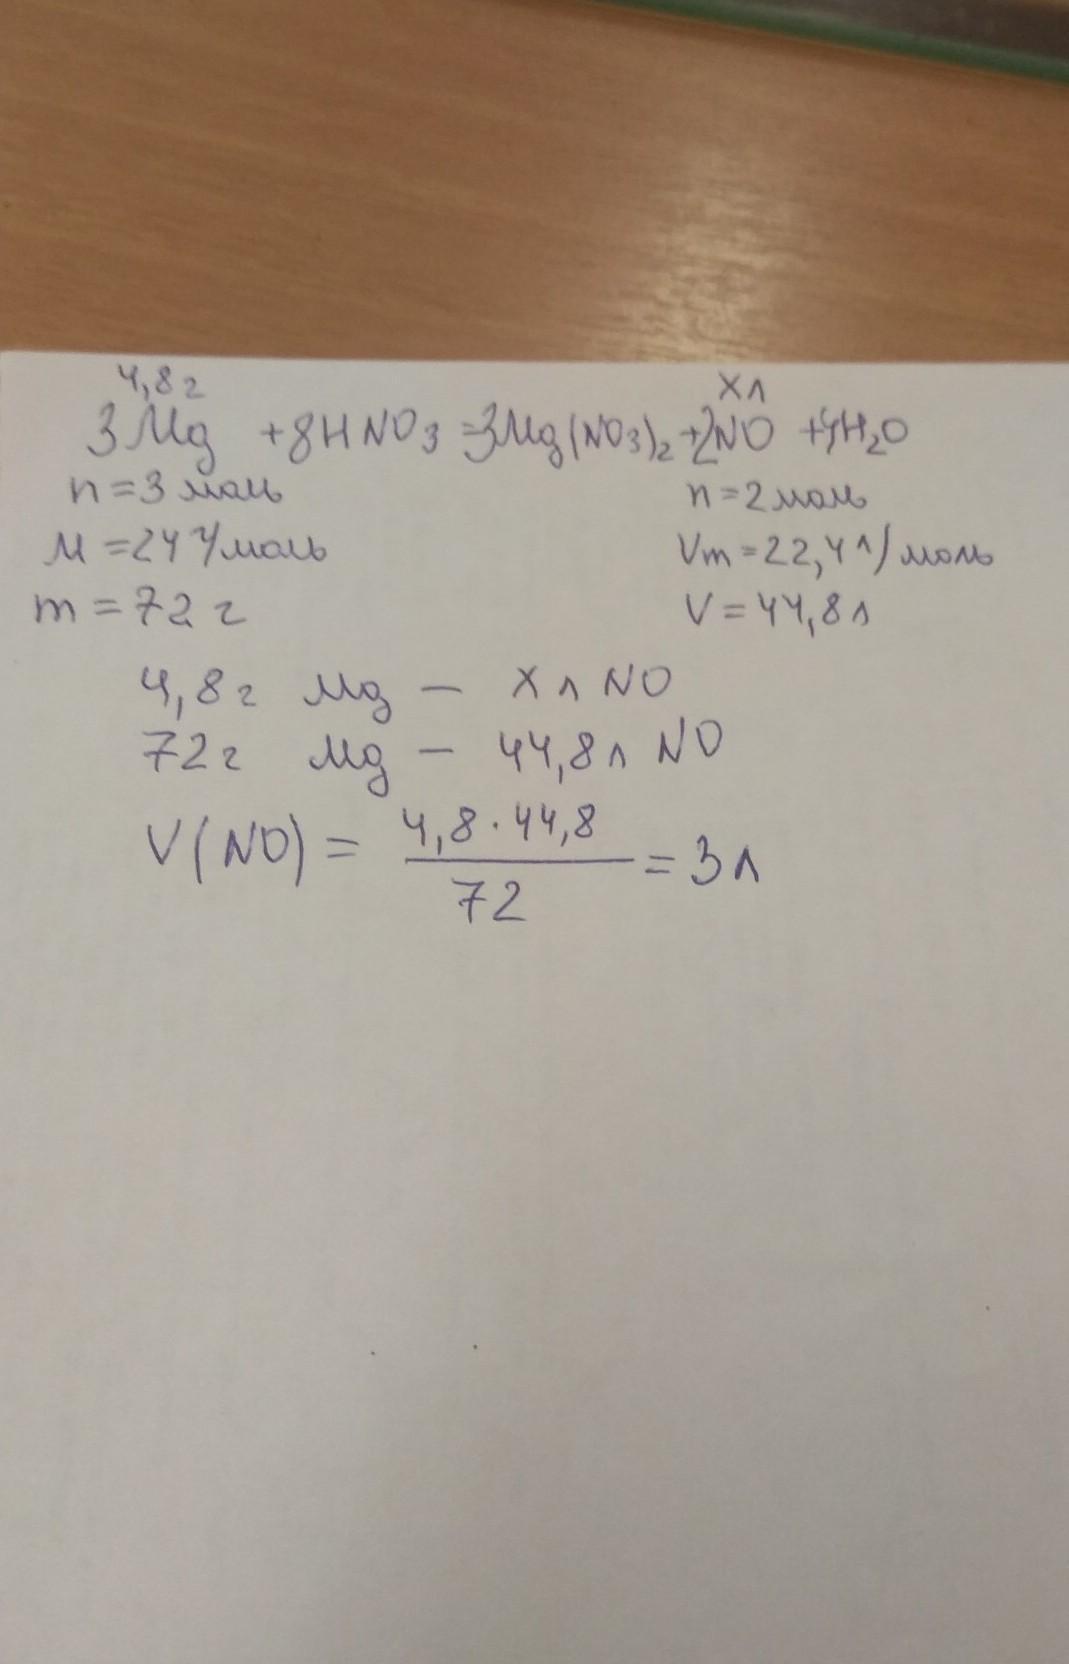 4,8г хл
3Mg + 8HNO3 = 3Mg(NO3)2 + 2NO + 4H2O
n = 3 моль n = 2 моль
M = 24 г/моль Vm = 22,4 л/моль
m = 72 г V = 44,8 л
4,8 г Mg — х л NO
72 г Mg — 44,8 л NO
V(NO) = 4,8 · 44,8 / 72 = 3 л